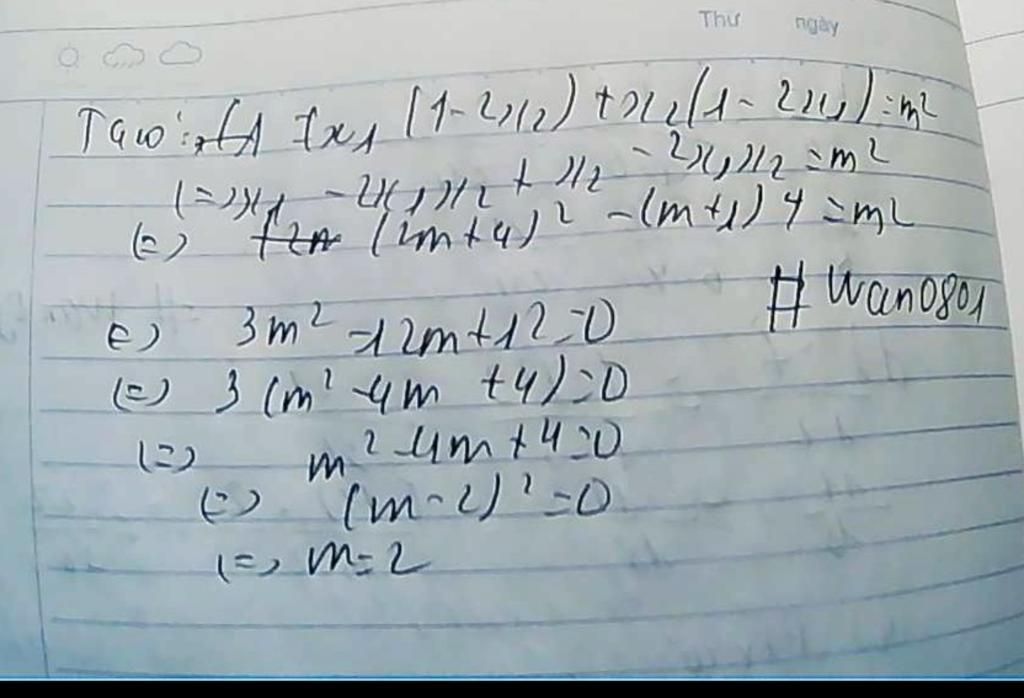 Thứ ngày
Ta có: x₁ (1-2x₂) + x₂(1-2x₁) = m²
(=) x₁ - 2x₁x₂ + x₂ - 2x₁x₂ = m²
(=) (2m+4)² - (m+1) 4 = m²
#Wan0801
(=) 3m² -12m+12=0
(=) 3 (m² -4m +4)=0
(=) m² -4m+4=0
(=) (m-2)² =0
(=) m=2